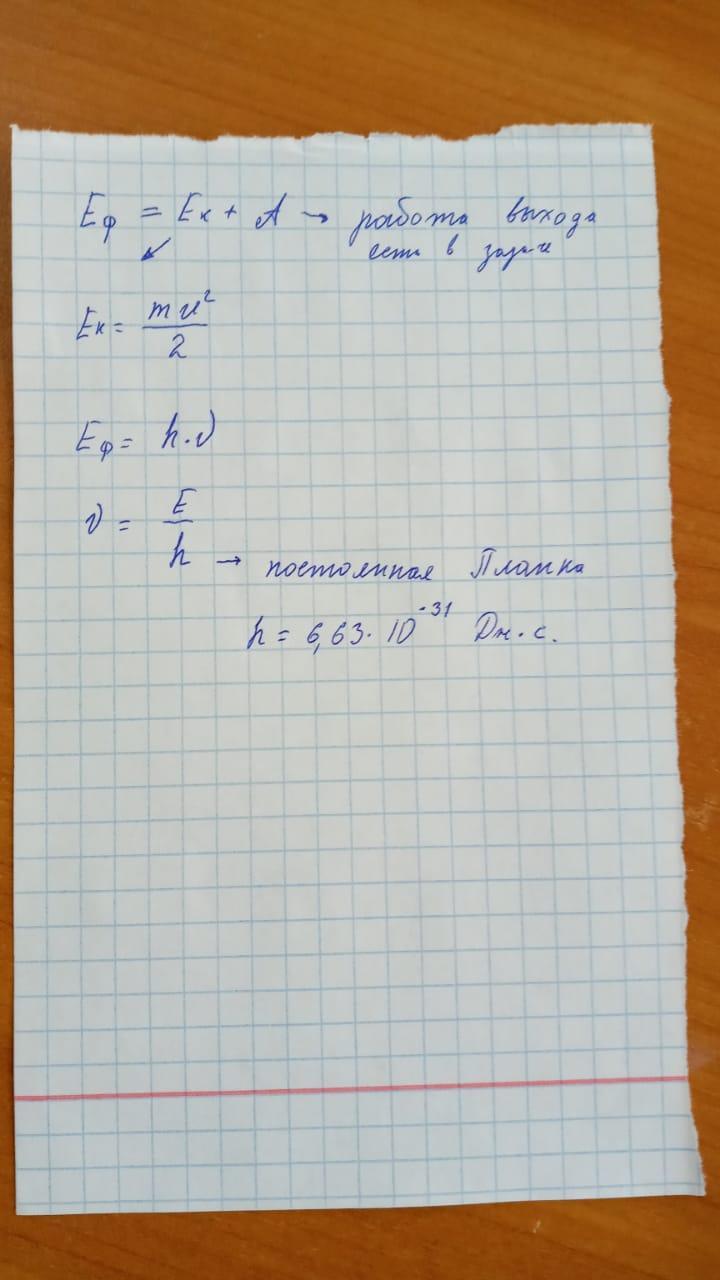 Eф = Eк + A → работа выхода
есть в задаче
Eк = mu²/2
Eф = h·ν
ν = E/h → постоянная Планка
h = 6,63·10⁻³¹ Дж·с.